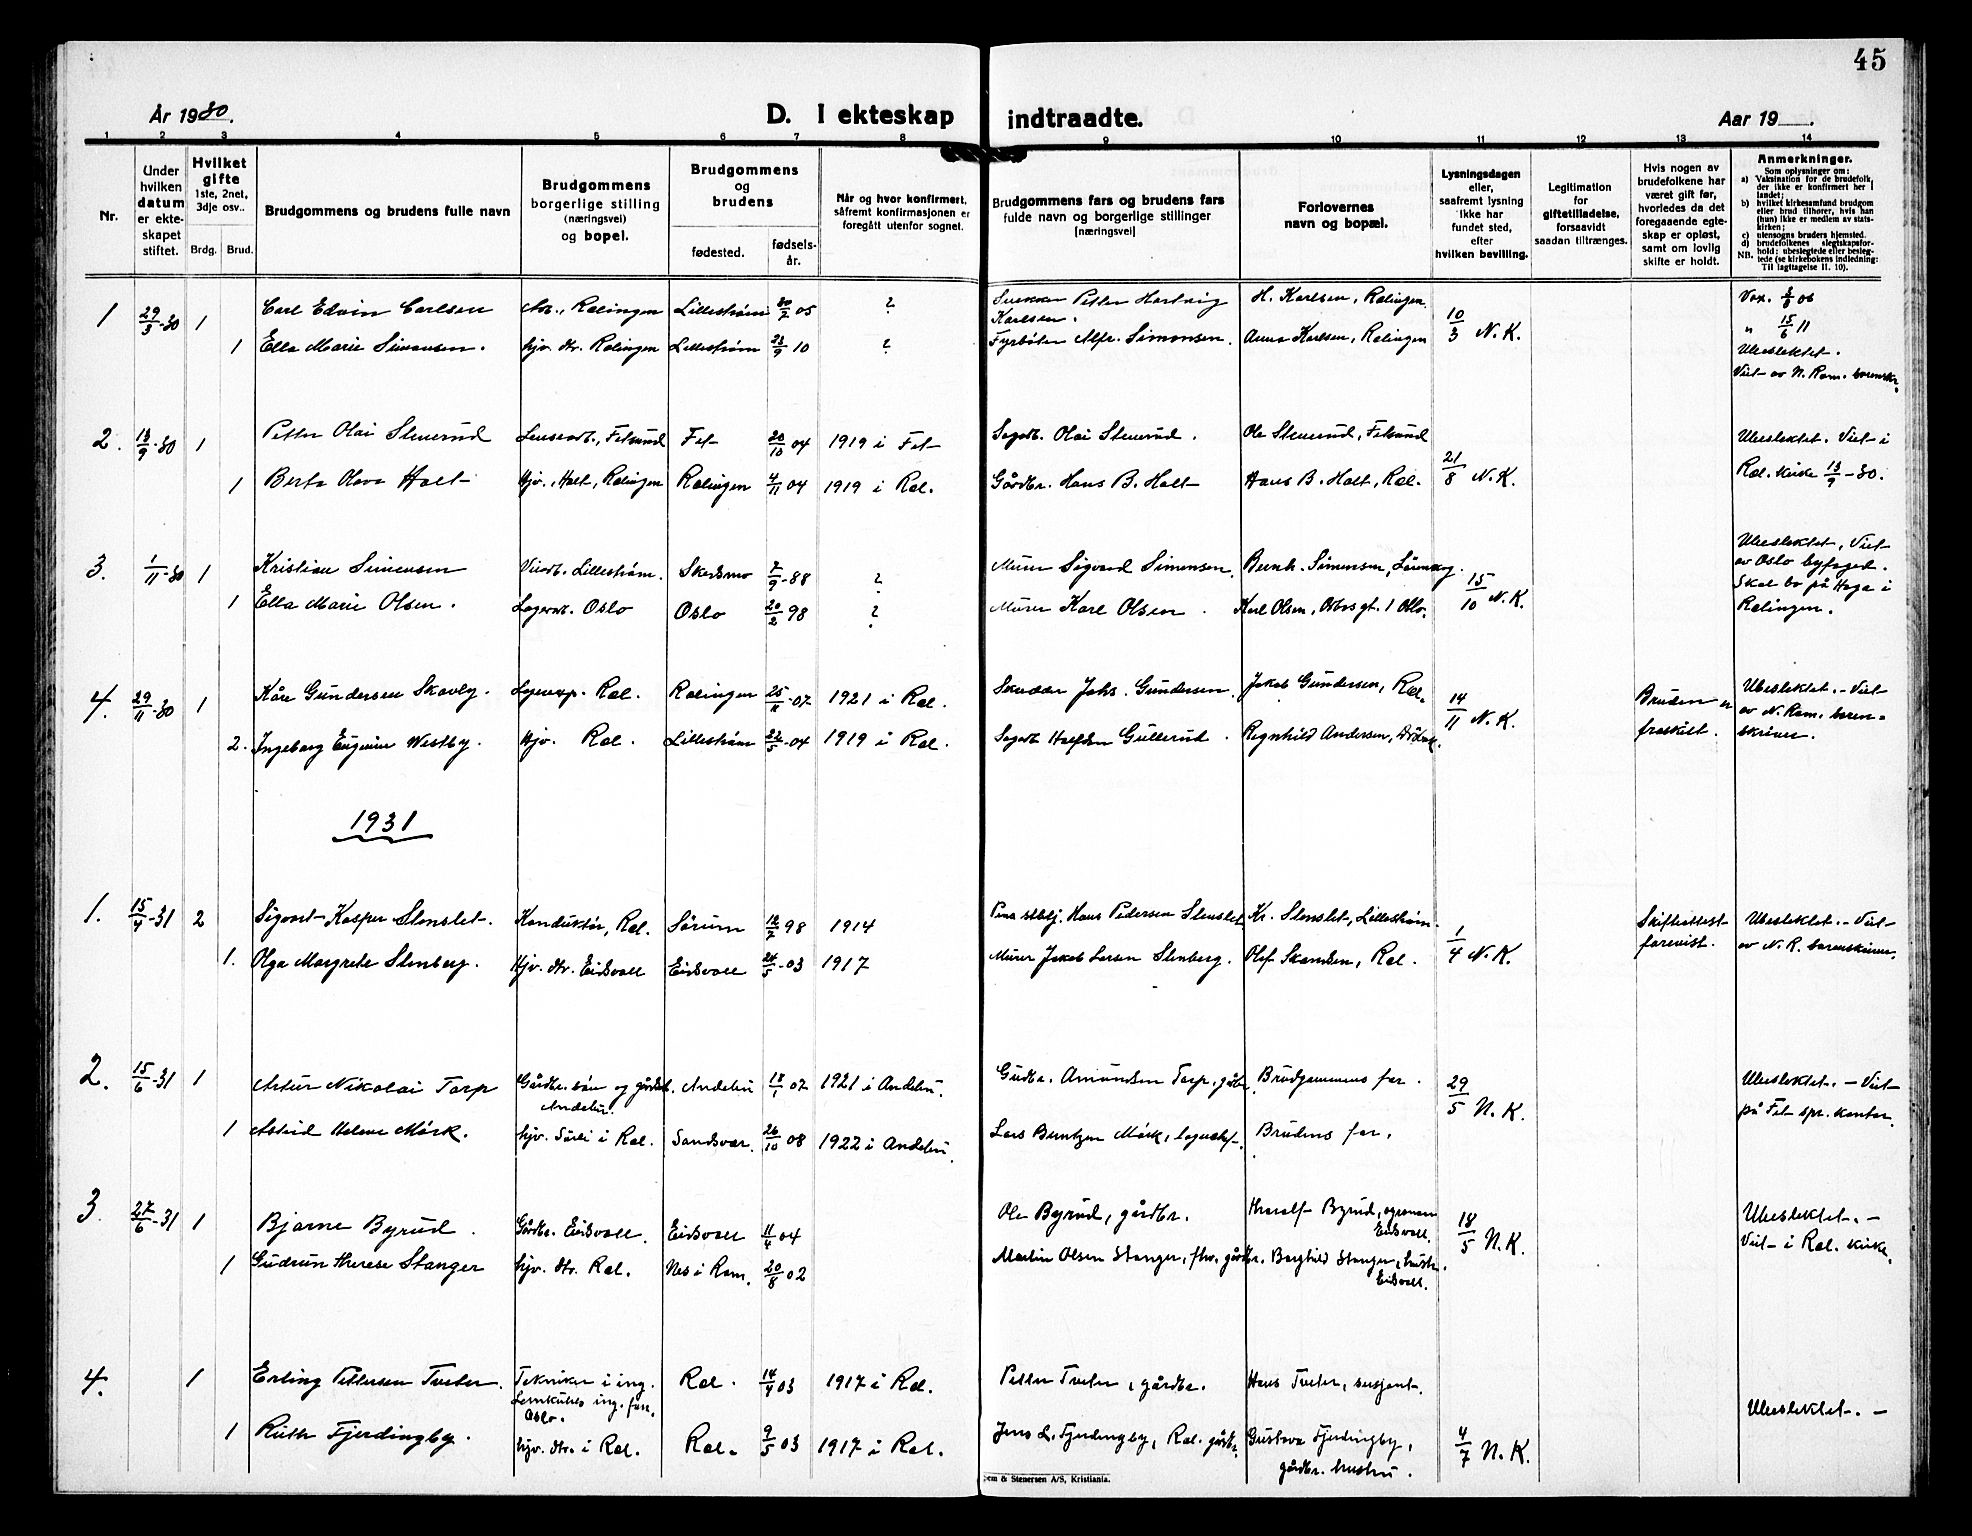 45
År 1930.
D. I ekteskap indtraadte.
Aar 19    .
1 2 3 4 5 6 7 8 9 10 11 12 13 14
Nr.
Under hvilken datum er ekteskapet stiftet.
Hvilket gifte 1ste, 2net, 3dje osv..
Brdg. Brud.
Brudgommens og brudens fulle navn
Brudgommens borgerlige stilling (næringsvei) og bopel.
Brudgommens og brudens
fødested. fødselsår.
Når og hvor konfirmert, såfremt konfirmasjonen er foregått utenfor sognet.
Brudgommens fars og brudens fars fulde navn og borgerlige stillinger [næringsvei]
Forlovernes navn og bopæl.
Lysningsdagen eller, saafremt lysning ikke har fundet sted, efter hvilken bevilling.
Legitimation for giftetilladelse, forsaavidt saadan tiltrænges.
Hvis nogen av brudefolkene har været gift før, hvorledes da det foregaaende egteskap er opløst, samt om lovlig skifte er holdt.
Anmerkninger.
Som oplysninger om:
a) Vaksination for de brudefolk, der ikke er konfirmert her i landet;
b) hvilket kirkesamfund brudgom eller brud tilhører, hvis han (hun) ikke er medlem av statskirken;
c) utensogns bruders hjemsted.
d) brudefolkenes slegtskapsforhold: ubeslegtede eller beslegtede (se kirkebokens indledning:
NB. Til Iagttagelse II. 10).
1 29/3-30 1 Carl Edvin Carlsen Arb., Rælingen Lillestrøm 30/7 05 ? Snekker Petter Hartvig Karlsen. H. Karlsen, Rælingen 10/3 N.K. Vax. 3/8 06
1 Ella Marie Simensen. hjv. dtr. Rælingen Lillestrøm 23/9 10 ? Fyrbøter Alfr. Simonsen. Anna Karlsen, Rælingen " 15/6 11
Ubeslektet.
Viet av N. Rom. sorenskr.
2. 13/9-30 1 Petter Olai Stenerud Lensearb., Fetsund Fet 20/10 04 1919 i Fet Sagarb. Olai Stenerud. Ole Stenerud, Fetsund 21/8 N.K. Ubeslektet. Viet i
1 Berta Olava Holt Hjv., Holt, Rælingen Rælingen 4/11 04 1919 i Ræl. Gårdbr. Hans B. Holt Hans B. Holt, Ræl. Ræl. kirke 13/9-30.
3. 1/11-30 1 Kristian Simensen Lillestrøm. Skedsmo 7/9-88 ? Murer Sigvard Simensen. Bernh. Simensen, Lørenskog. 15/10 N.K. Ubeslektet, Viet
av Oslo byfoged.
1 Ella Marie Olsen. Lagerarb. Oslo Oslo 20/2 98 ? Murer Karl Olsen. Karl Olsen, gt. 1 Oslo. Skal bo på Haga i
Rælingen.
4. 29/11-30 1 Kåre Gundersen Skovly. Lagerexp. Ræl. Rælingen 25/11-07 1921 i Ræl. Skredder Johs. Gundersen. Jakob Gundersen, Ræl. 14/11 N.K. Bruden er fraskilt. Ubeslektet. - Viet
av N. Rom. soren-
2. Ingeborg Eugenie Westby. Hjv. Ræl. Lillestrøm 22/5-04 1919 i Ræl. Sagarb Halfdan Gullerud. Ragnhild Andersen, Drøbak. skriver.
1931
1. 15/4-31 2 Sigvart Kasper Stenslet. Konduktør, Ræl. Sørum 12/7 98 1914 Hans Pedersen Stenslet Kr. Stenslet, Lillestrøm. 1/4 N.K. Skifteattest forevist. Ubeslektet. - Viet
1. Olga Margrete Stenberg. Hjv. dtr. Eidsvoll Eidsvoll 24/5-03 1917 Murer Jakob Larsen Stenberg. Olaf Skansen, Ræl. av N. R. sorenskriver.
2. 15/6-31 1 Artur Nikolai Torp Gårdbr. sønn og gårdarb. Andebu. Andebu 18/1 07 1921 i Andebu. Gudbr. Amundsen Torp, gåbr. Brudgommens far. 29/5 N.K. Ubeslektet. - Viet
1 Astrid Helene Mørk. hjv. Særli i Ræl. Sandsvær. 26/10 08 1922 i Andebu. Lars Berntzen Mørk, Brudens far. på Fet spr. kontor.
3. 27/6-31 1 Bjarne Byrud. Gårdbr. Eidsvoll. Eidsvoll 11/4 04 Ole Byrud, gårdbr. Byrud, agronom Eidsvoll. 18/5 N.K. Ubeslektet. -
1 Gudrun Therese Stanger hjv. dtr. Ræl. Nes i Rom. 20/8 02 Martin Olsen Stanger, fhv. gårdbr. Borghild Stanger, hustr. Eidsvoll. Viet i Ræl. kirke.
4. 1 Erling Pettersen Tveter. Tekniker i ing. Lemkuhls ing. forr. Oslo. Ræl. 14/4 03 1917 i Ræl. Petter Tveter, gårdbr. Hans Tveter, sersjant. Ubeslektet. -
1 Ruth Fjerdingby. hjv. dtr. i Ræl. Ræl. 9/5 03 1917 i Ræl. Jens L. Fjerdingby, Ræl. gårdbr. Gustava Fjerdingby, gårdbr. hustru. 4/7 N.K.
Sem & Stenersen A/S, Kristiania.